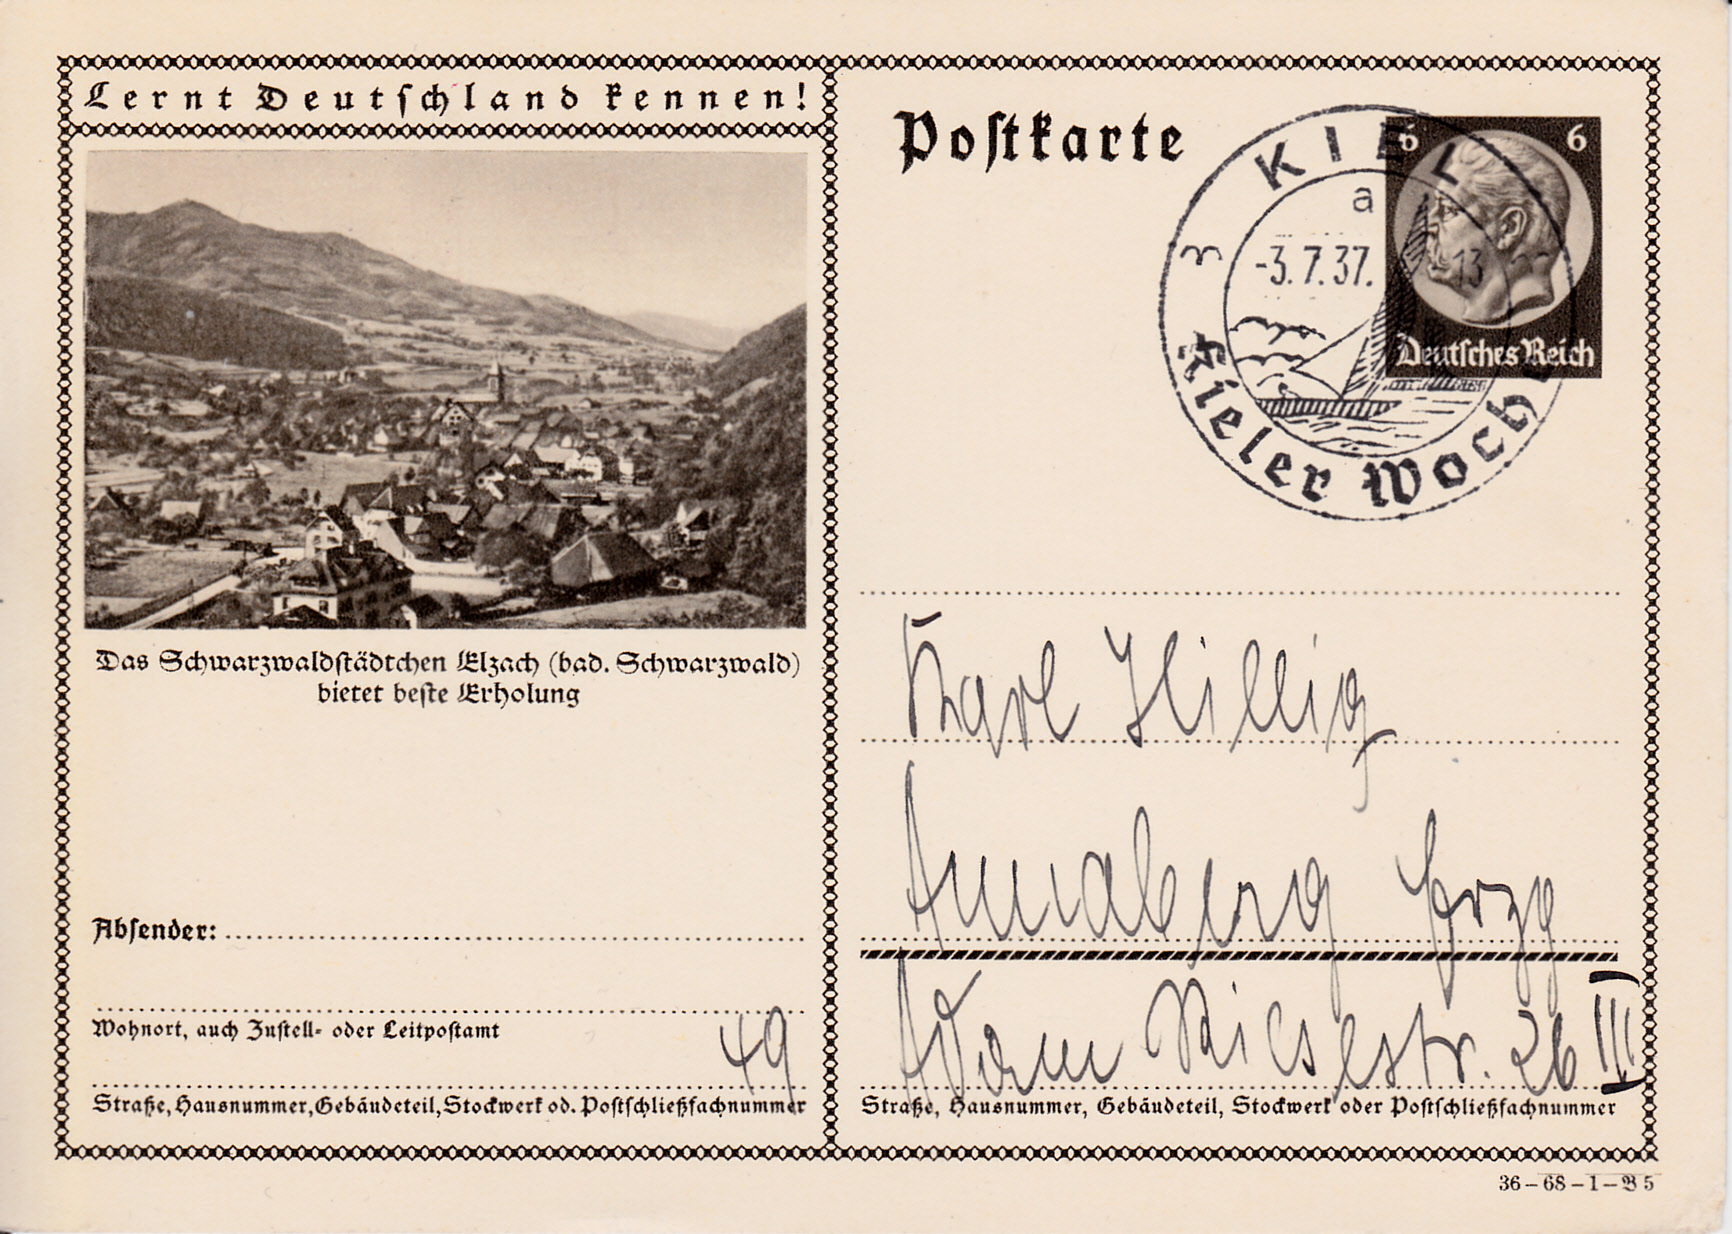 Lernt Deutschland kennen!
Das Schwarzwaldstädtchen Elzach (bad. Schwarzwald)
bietet beste Erholung
Absender:
Wohnort, auch Zustell- oder Leitpostamt
49
Straße, Hausnummer, Gebäudeteil, Stockwerk od. Postschließfachnummer
Postkarte
6 6
Deutsches Reich
KIEL
a
-3.7.37. 13
Kieler Woche
Karl Hillig
Annaberg Erzg
Adam Riesestr. 26 III
Straße, Hausnummer, Gebäudeteil, Stockwerk oder Postschließfachnummer
36-68-1-B5